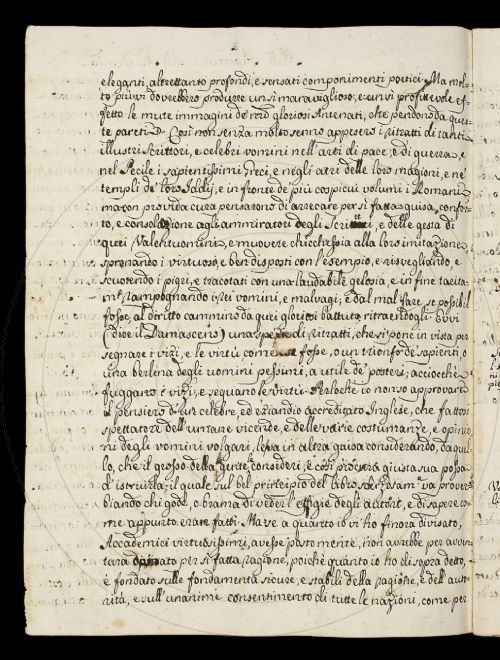 eleganti, altrettanto profondi, e sensati componimenti poetici. Ma mol-
to più vi dovrebbero produrre un sì maraviglioso, e un sì profittevole ef-
fetto le mute immagini de' vostri gloriosi Antenati, che pendono da que-
ste pareti. Così non senza molto senno appesero i ritratti di tanti
illustri Scrittori, e celebri uomini nell'arti di pace, e di guerra, e
nel Pecile i sapientissimi Greci, e negli atrj delle loro magioni, e ne'
templi de' loro Iddij, e in fronte de' più cospicui volumi i Romani
ma con provida cura pensarono di arrecare per sì fatta guisa, confor-
to, e consolazione agli ammiratori degli Scritti, e delle gesta di
quei Valentuomini, e muovere chicchessia alla loro imitazione
spronando i virtuosi, e ben disposti con l'esempio, e risvegliando, e
scuotendo i pigri, e tracotati con una laudabile gelosia, e in fine tacita-
mte. rampognando i rei uomini, e malvagi, e dal mal fare, se possibil
fosse, al diritto cammino da quei gloriosi battuto ritraendogli. Evvi
(dice il Damasceno) una spezie di ritratti, che si pone in vista per
segnare i vizi, e le virtù come se fosse, o un trionfo de' sapienti, o
una berlina degli uomini pessimi, a utile de' posteri; acciocchè
fuggano i vizi, e seguano le virtù. Perlochè io non so approvare
il pensiero d'un celebre, ed eziandio accreditato Inglese, che fattosi
spettatore dell'umane vicende, e delle varie costumanze, e opinio-
ni degli uomini volgari, in altra guisa considerando, da quel-
lo, che il grosso della gente consideri, e così procura giusta sua possa
d'istruirla; il quale sul bel principio del libro va prover-
biando chi gode, o brama di veder l'effigie degli autori, e di sapere co-
me appunto eran fatti. Ma se a quanto io vi ho finora divisato,
Accademici virtuosissimi, avesse posto mente, non avrebbe per avven-
tura per sì fatta ragione, poichè quanto io ho di sopra detto,
è fondato sulle fondamenta sicure, e stabili della ragione, e dell'auto-
rità, e sull'unanime consentimento di tutte le nazioni, come per